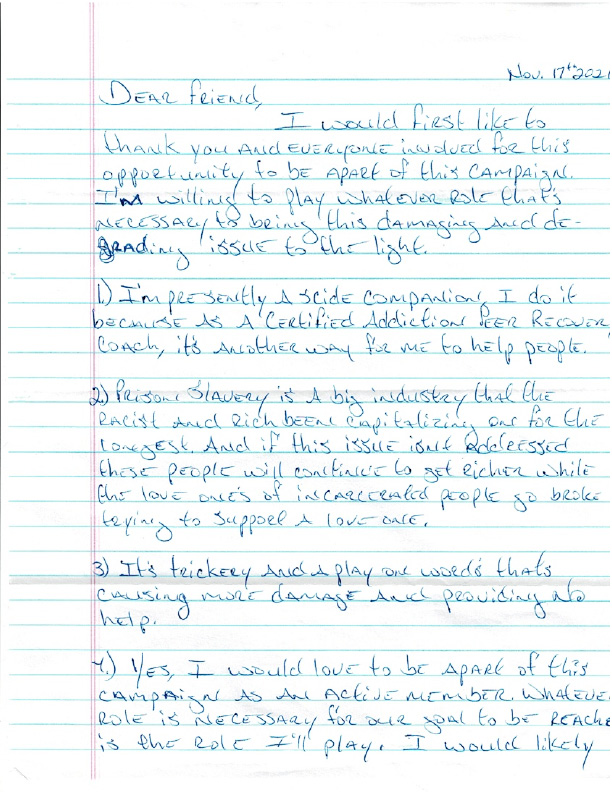 Nov. 17th 2021
Dear Friend,
I would first like to
thank you and everyone involved for this
opportunity to be apart of this campaign.
I'm willing to play whatever role that's
necessary to bring this damaging and de-
grading issue to the light.
1.) I'm presently a scide companion, I do it
because as a Certified Addiction Peer Recover
Coach, it's another way for me to help people.
2.) Prison Slavery is a big industry that the
racist and rich been capitalizing on for the
longest. And if this issue isn't addressed
these people will continue to get richer while
the love one's of incarcerated people go broke
trying to support a love one.
3) It's trickery and a play on words that's
causing more damage and providing no
help.
4.) Yes, I would love to be apart of this
campaign as an active member. Whateve
role is necessary for our goal to be reache
is the role I'll play. I would likely